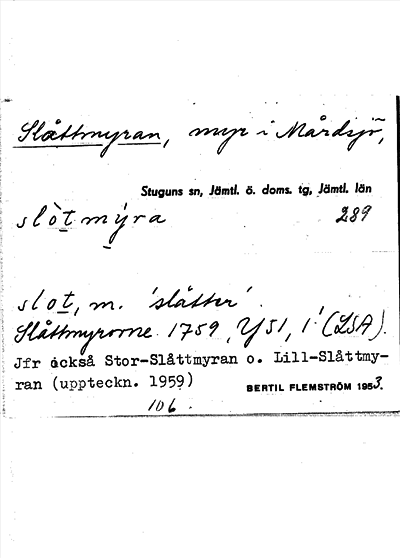 Slåttmyran, myr i Mårdsjö,
Stuguns sn, Jämtl. ö. doms. tg, Jämtl. län
slòt mýra 289
slot, m. 'slåtter'.
Slåttmyrorne 1759, Y51, 1 (LSA).
Jfr också Stor-Slåttmyran o. Lill-Slåttmy-
ran (uppteckn. 1959)
BERTIL FLEMSTRÖM 1953.
106.